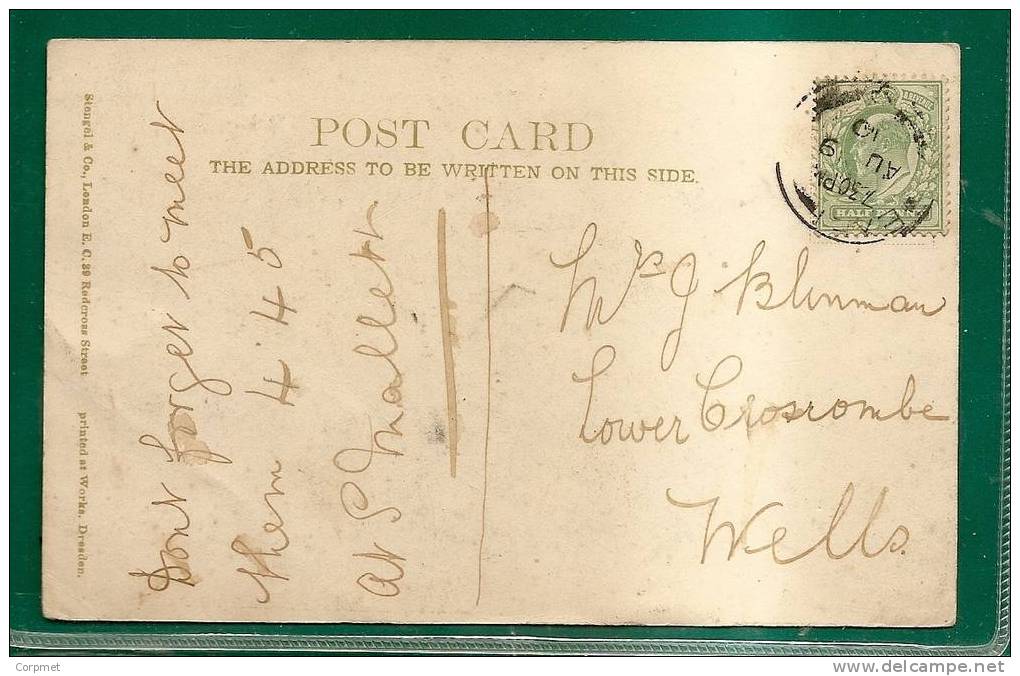 POST CARD
THE ADDRESS TO BE WRITTEN ON THIS SIDE.
Stengel & Co., London E. C. 39 Redcross Street printed at Works, Dresden.
Dont forget to meet
them 4 45
at S Mallet
Mrs J Blinman
Lower Croscombe
Wells
HALF PENNY
7.30 PM
AU 9
10
Corpmet
www.delcampe.net